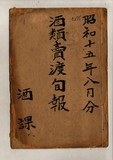 昭和十五年八月分
酒類賣渡旬報
酒課